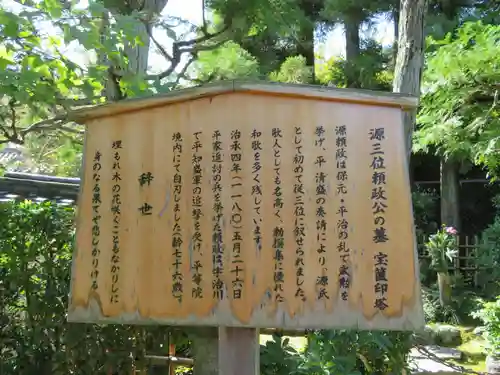 源三位頼政公の墓 宝篋印塔
源頼政は保元・平治の乱で武勲を
挙げ、平清盛の奏請により、源氏
として初めて従三位に叙せられました。
歌人としても名高く、勅撰集に優れた
和歌を多く残しています。
治承四年(一一八〇)五月二十六日
平家追討の兵を挙げた頼政は、宇治川
で平知盛軍の追撃を受け、平等院
境内にて自刃しました(齢七十六歳)。
辞世
埋もれ木の花咲くこともなかりしに
身のなる果てや悲しかりける